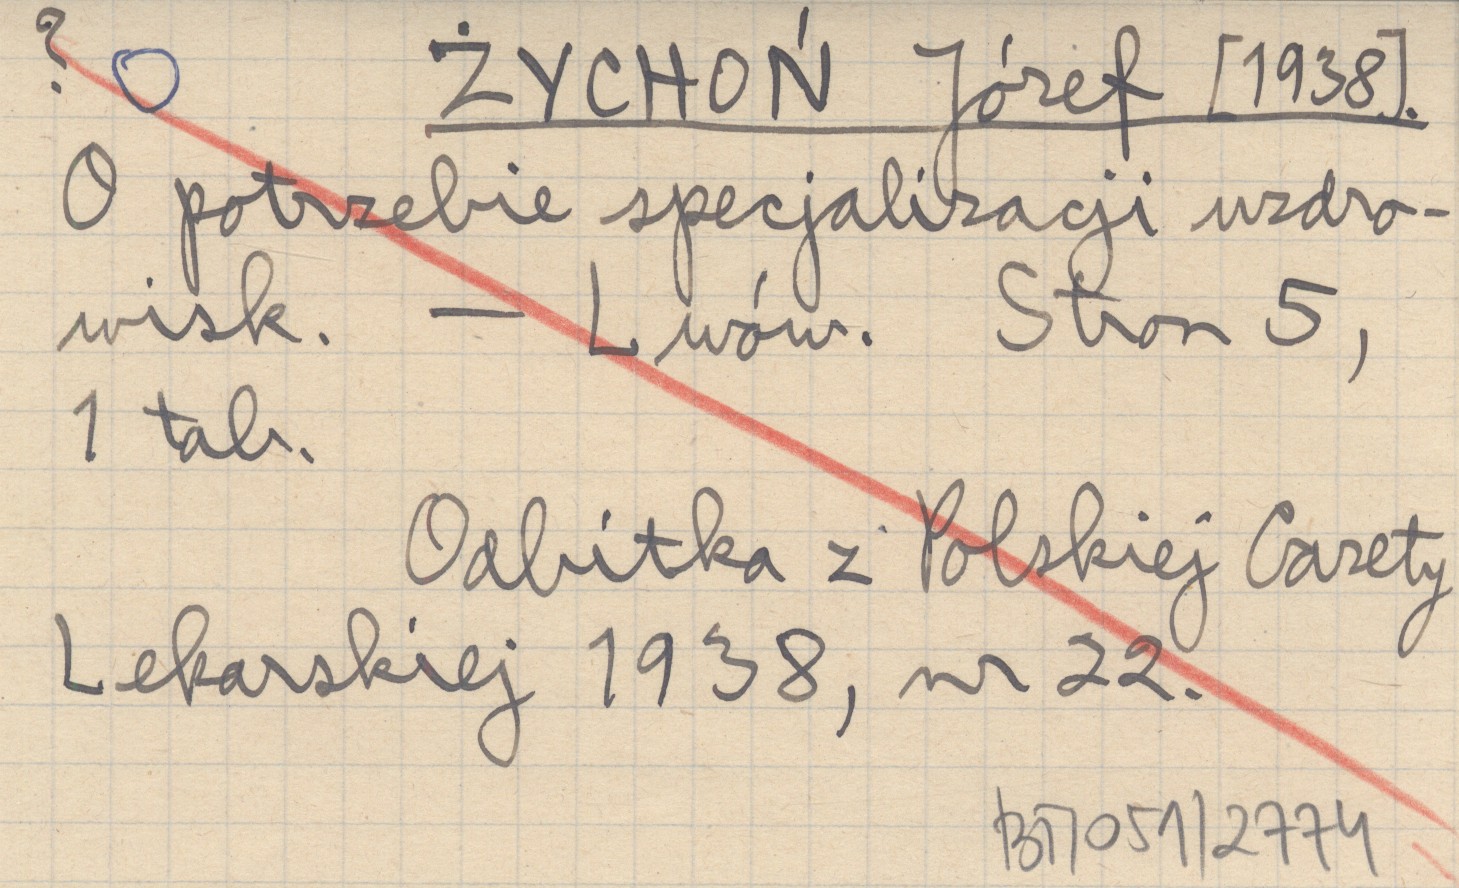 ?
ŻYCHOŃ Józef [1938].
O potrzebie specjalizacji uzdro-
wisk. — Lwów. Stron 5,
1 tab.
Odbitka z Polskiej Gazety
Lekarskiej 1938, nr 22.
BT/051/2774